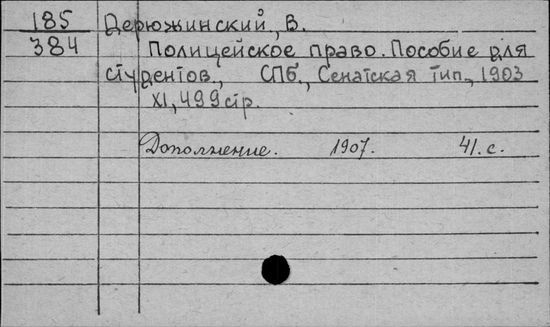 185 Дерюжинский, В.
384 Полицейское право. Пособие для
студентов., СПб., Сенатская тип., 1903
XI, 499 стр.
Дополнение. 1907. 41. с.